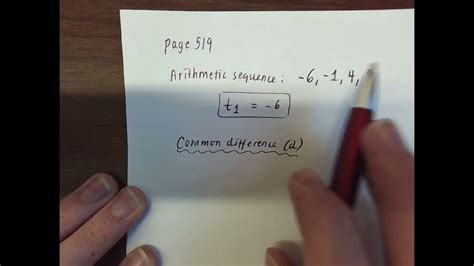 page 519
Arithmetic sequence: -6, -1, 4,
t1 = -6
Common difference (d)